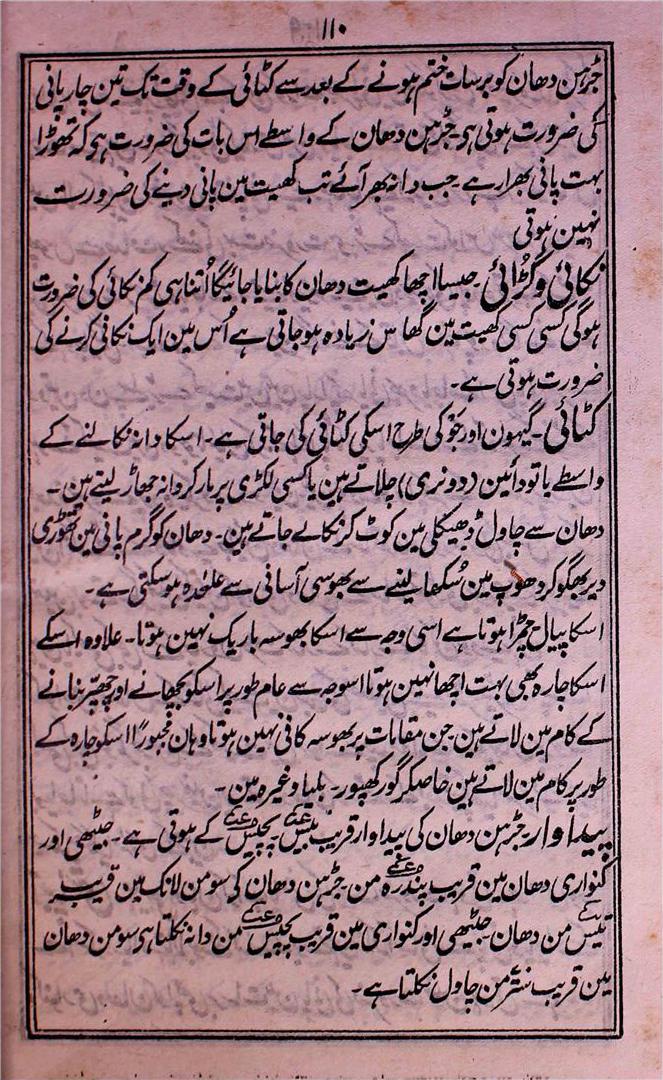 ۱۱۰
جڑہن دھان کو برسات ختم ہونے کے بعد سے کٹائی کے وقت تک تین چار پانی
کی ضرورت ہوتی ہی۔ جڑہن دھان کے واسطے اس بات کی ضرورت ہو کہ تھوڑا
بہت پانی بھرا رہے جب دانہ بھر آئے تب کھیت مین پانی دینے کی ضرورت
نہین ہوتی
نکائی و گڑائی جیسا اچھا کھیت دھان کا بنایا جائیگا اُتنا ہی کم نکائی کی ضرورت
ہوگی کسی کسی کھیت مین گھاس زیادہ ہو جاتی ہے اُس مین ایک نکائی کرنے کی
ضرورت ہوتی ہے۔
کٹائی۔ گیہون اور جَو کی طرح اسکی کٹائی کی جاتی ہے۔ اسکا دانہ نکالنے کے
واسطے یا تو دائین (دونری) چلاتے ہین یا کسی لکڑی پر مار کر دانہ جھاڑ لیتے ہین۔
دھان سے چاول ڈھیکلی مین کوٹ کر نکالے جاتے ہین۔ دھان کو گرم پانی مین تھوڑی
دیر بھگو کر دھوپ مین سُکھا لینے سے بھوسی آسانی سے علٰحدہ ہو سکتی ہے۔
اسکا پیال چمڑا ہوتا ہے اسی وجہ سے اسکا بھوسہ باریک نہین ہوتا۔ علاوہ اسکے
اسکا چارہ بھی بہت اچھا نہین ہوتا اسوجہ سے عام طور پر اسکو بچھانے اور چھپّر بنانے
کے کام مین لاتے ہین۔ جن مقامات پر بھوسہ کافی نہین ہوتا وہان مجبورًا اسکو چارہ کے
طور پر کام مین لاتے ہین خاصکر گورکھپور۔ بلیا وغیرہ مین۔
پیداوار۔ جڑہن دھان کی پیداوار قریب پچیس کے ہوتی ہے۔ جیٹھی اور
کنواری دھان مین قریب پندرہ من۔ جڑہن دھان کی سو من لانک مین قریب
تیس من دھان جیٹھی اور کنواری مین قریب پچیس من دانہ نکلتا ہی سو من دھان
مین قریب ستر من چاول نکلتا ہے۔